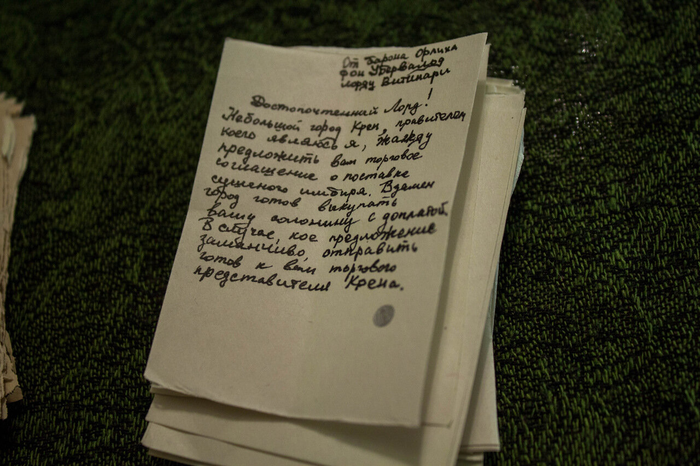 От Барона Орлиха
фон Убервальд
лорду Витинари
Достопочтенный Лорд!
Небольшой город Крен, правителем
коего являюсь я, жажду
предложить вам торговое
соглашение о поставке
сушеного имбиря. Взамен
город готов выкупать
вашу солонину с доплатой.
В случае, кое предложение
заманчиво, отправить
готов к вам торгового
представителя Крена.